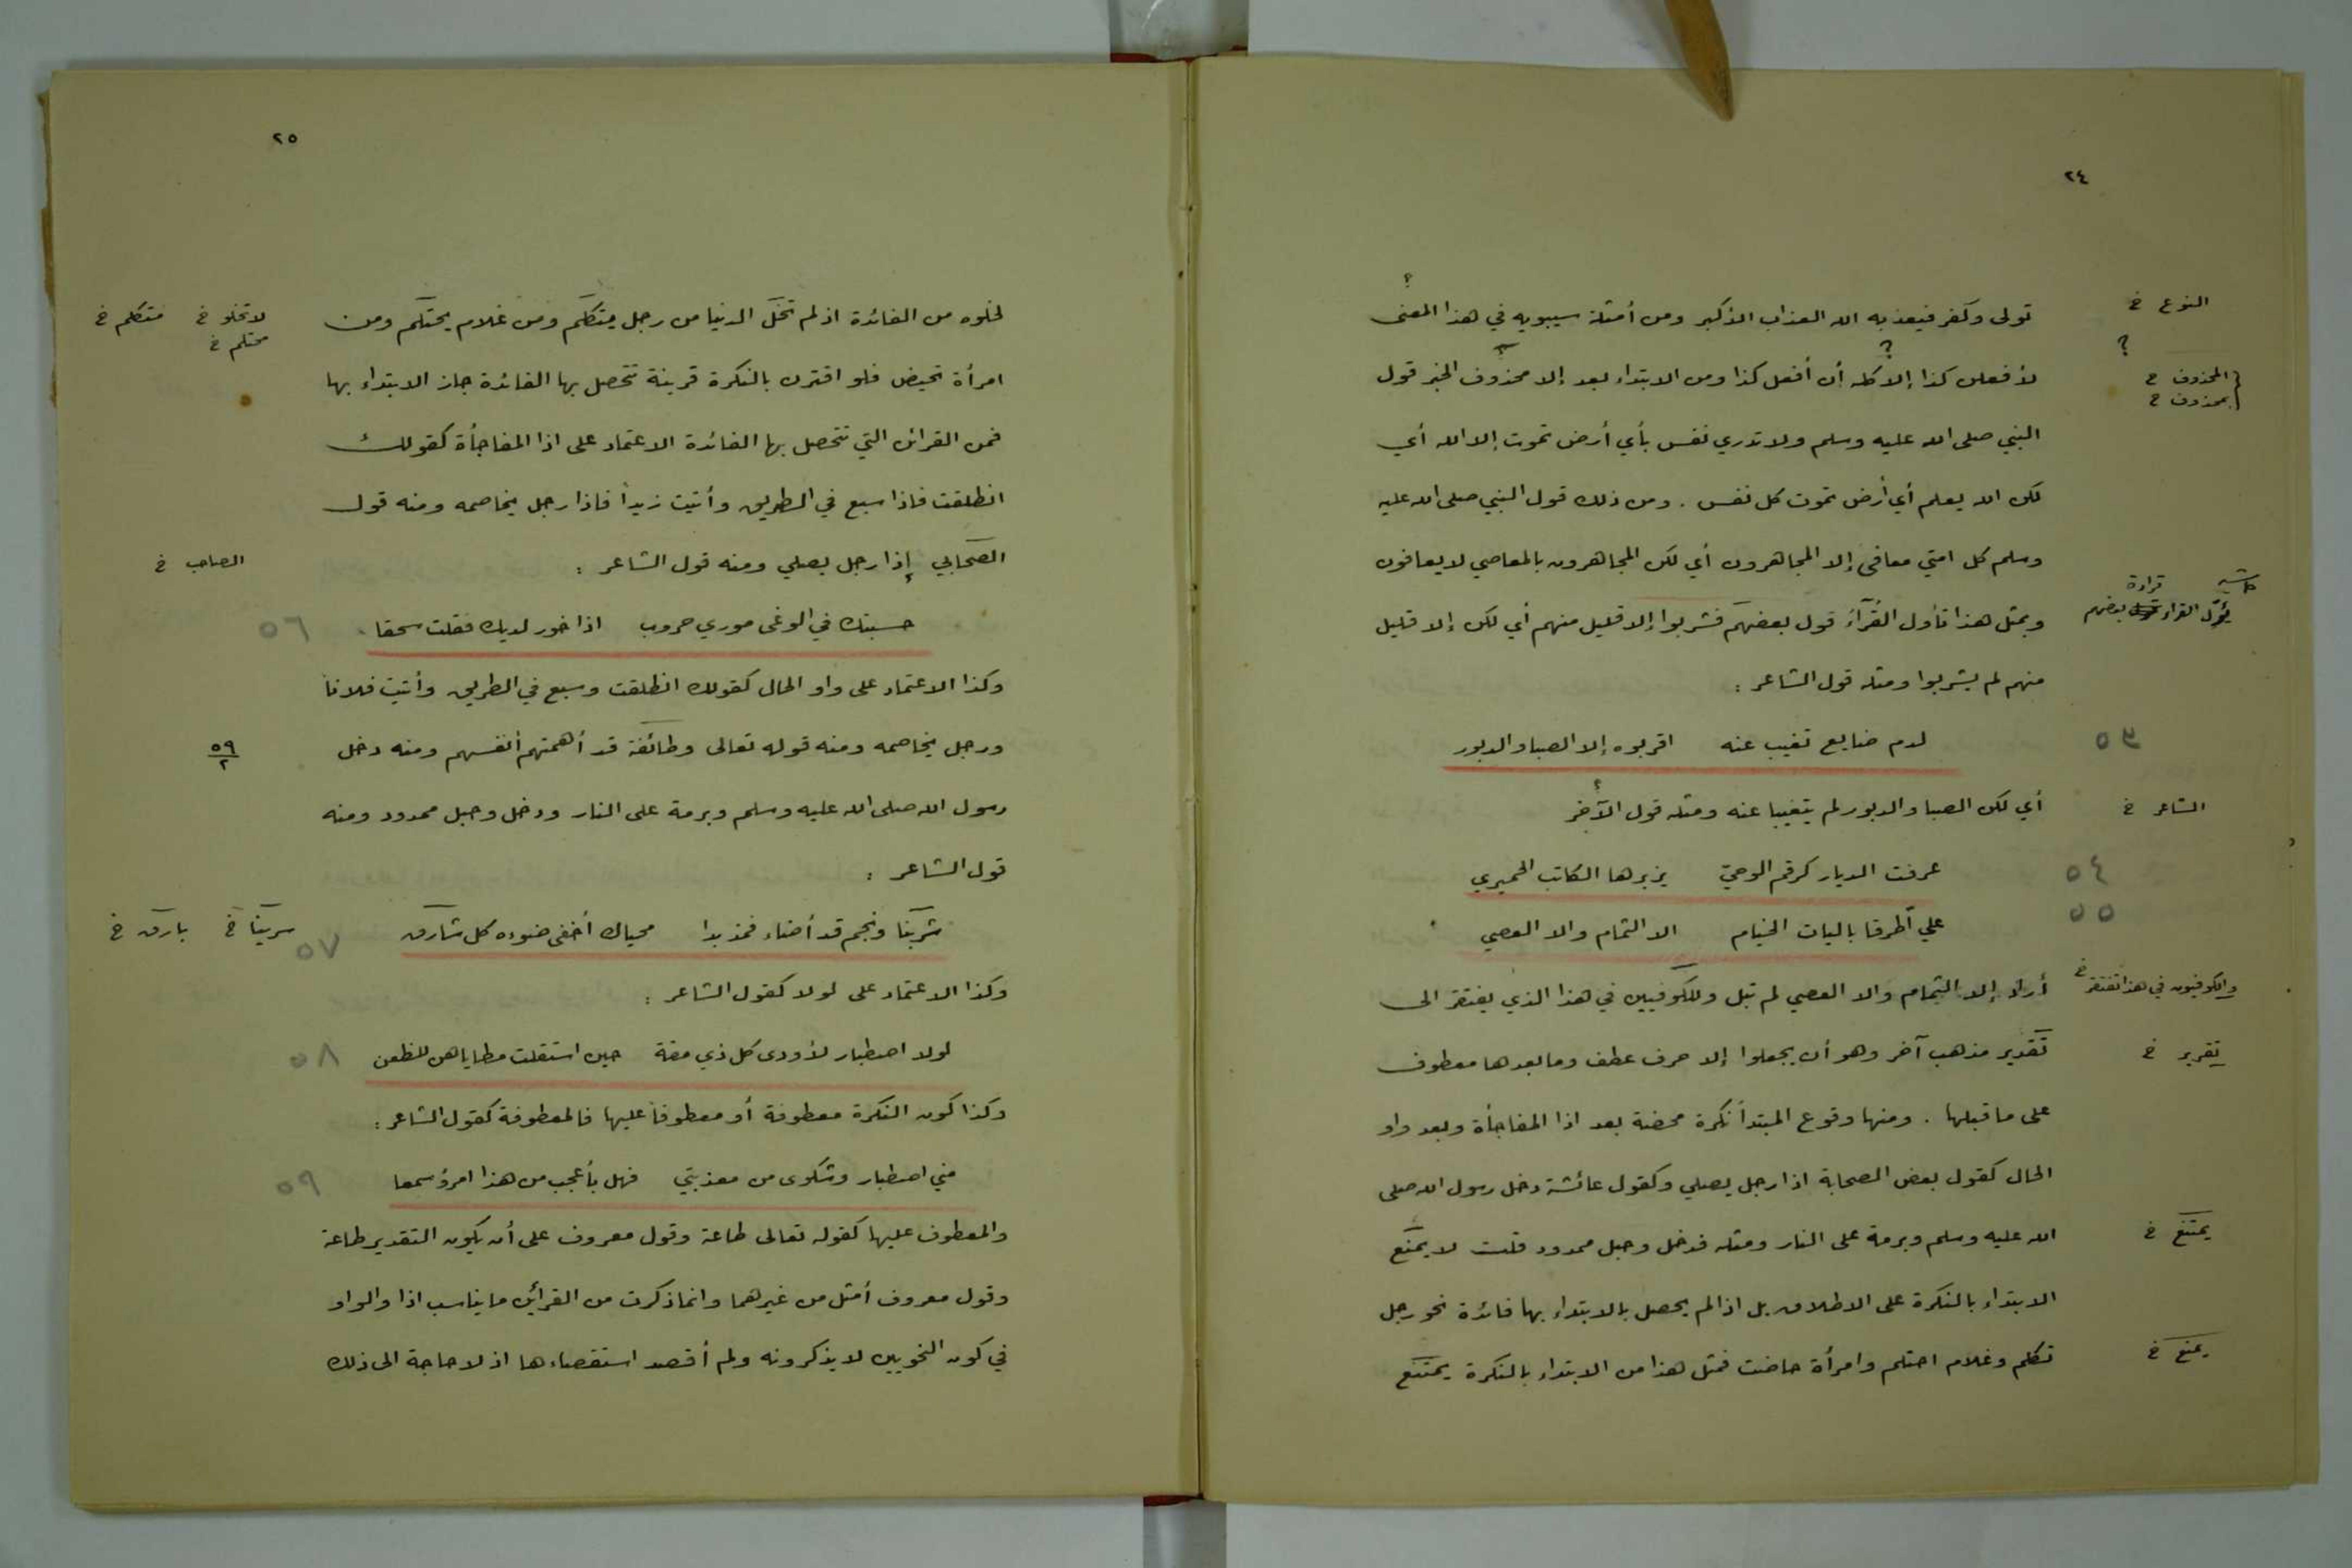 ٢٤
تولى وكفر فيعذبه الله العذاب الأكبر ومن أمثلة سيبويه في هذا المعنى
النوع خ
لأفعلن كذا إلا كله أن أفعل كذا ومن الابتداء بعد إلا محذوف الخبر قول
المحذوف خ
بمحذوف خ
النبي صلى الله عليه وسلم ولا تدري نفس بأي أرض تموت إلا الله أي
لكن الله يعلم أي أرض تموت كل نفس . ومن ذلك قول النبي صلى الله عليه
وسلم كل امتي معافى إلا المجاهرون أي لكن المجاهرون بالمعاصي لا يعافون
وبمثل هذا تأول القراء قول بعضهم فشربوا إلا قليل منهم أي لكن إلا قليل
قراءة بعضهم
منهم لم يشربوا ومثله قول الشاعر :
لدم ضايع تغيب عنه اقربوه إلا الصبا والدبور
٥٣
أي لكن الصبا والدبور لم يتغيبا عنه ومثله قول الآخر
الشاعر خ
عرفت الديار كرقم الوحيّ يزبرها الكاتب الحميري
٥٤
على أطرقا باليات الخيام الا الثمام والا العصي
٥٥
أراد إلا الثمام والا العصي لم تبل وللكوفيين في هذا الذي يفتقر الى
والكوفيون في هذا تفتقر خ
تقدير مذهب آخر وهو أن يجعلوا إلا حرف عطف وما بعدها معطوف
تقرير خ
على ما قبلها . ومنها وقوع المبتدأ نكرة محضة بعد اذا المفاجأة وبعد واو
الحال كقول بعض الصحابة اذا رجل يصلي وكقول عائشة دخل رسول الله صلى
الله عليه وسلم وبرمة على النار ومثله فدخل وحبل ممدود قلت لا يمنع
يمتنع خ
الابتداء بالنكرة على الاطلاق بل اذا لم يحصل بالابتداء بها فائدة نحو رجل
تكلم وغلام احتلم وامرأة حاضت فمثل هذا من الابتداء بالنكرة يمتنع
يمنع خ
٢٥
لخلوه من الفائدة اذ لم تخل الدنيا من رجل يتكلم ومن غلام يحتلم ومن
لا تخلو خ متكلم خ
محتلم خ
امرأة تحيض فلو اقترن بالنكرة قرينة تتحصل بها الفائدة جاز الابتداء بها
فمن القرائن التي تتحصل بها الفائدة الاعتماد على اذا المفاجأة كقولك
انطلقت فاذا سبع في الطريق وأتيت زيداً فاذا رجل يخاصمه ومنه قول
الصحابي إذا رجل يصلي ومنه قول الشاعر :
الصاحب خ
حسبتك في الوغى موري حروب اذا خور لديك فقلت سحقا
٥٦
وكذا الاعتماد على واو الحال كقولك انطلقت وسبع في الطريق وأتيت فلانا
ورجل يخاصمه ومنه قوله تعالى وطائفة قد أهمتهم أنفسهم ومنه دخل
٥٩
٢
رسول الله صلى الله عليه وسلم وبرمة على النار ودخل وحبل ممدود ومنه
قول الشاعر :
شربنا ونجم قد أضاء فمذ بدا محياك أخفى ضوءه كل شارق
٥٧ سرينا خ بارق خ
وكذا الاعتماد على لولا كقول الشاعر :
لولا اصطبار لأودى كل ذي مقة حين استقلت مطاياهن للظعن
٥٨
وكذا كون النكرة معطوفة أو معطوفاً عليها فالمعطوفة كقول الشاعر :
مني اصطبار وشكوى من معذبتي فهل بأعجب من هذا امرؤ سمعا
٥٩
والمعطوف عليها كقوله تعالى طاعة وقول معروف على أن يكون التقدير طاعة
وقول معروف أمثل من غيرهما وانما ذكرت من القرائن ما يناسب اذا والواو
في كون النحويين لا يذكرونه ولم أقصد استقصاءها اذ لا حاجة الى ذلك